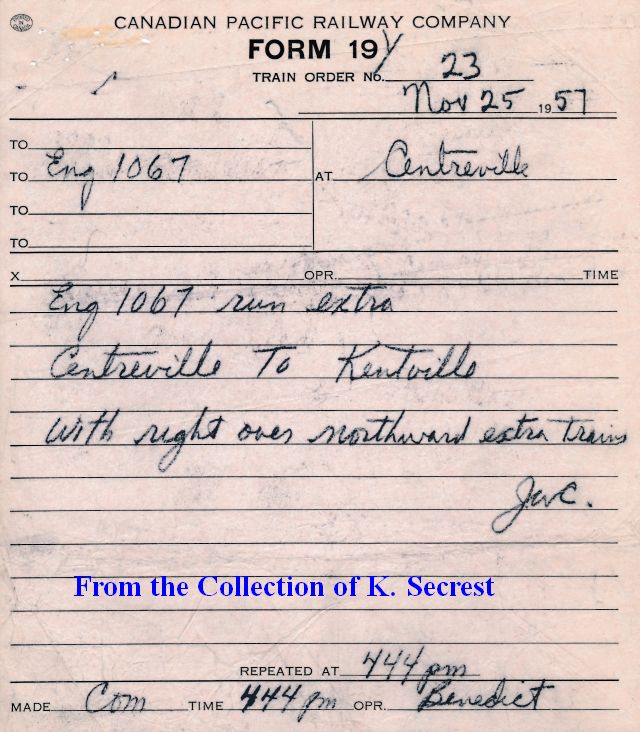 CANADIAN PACIFIC RAILWAY COMPANY
FORM 19 Y
TRAIN ORDER No. 23
Nov 25 1957
TO
TO Eng 1067 AT Centreville
TO
TO
X OPR. TIME
Eng 1067 run extra
Centreville To Kentville
With right over northward extra trains
JWC.
From the Collection of K. Secrest
REPEATED AT 444 pm
MADE Com TIME 444 pm OPR. Benedict